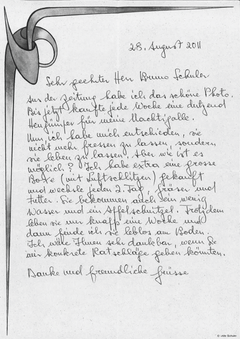 28. August 2011
Sehr geehrter Herr Bruno Schuler
Aus der Zeitung habe ich das schöne Photo.
Bis jetzt kaufte jede Woche eine dutzend
Heugümper für meine Nachtigalle.
Nun ich habe mich entschieden, sie
nicht mehr fressen zu lassen, sondern
sie leben zu lassen. Aber wie ist es
möglich? Ich habe extra eine grosse
Boxe (mit Luftschlitzen) gekauft
und wechsle jeden 2. Tag, Gräser und
Futter. Sie bekommen auch ein wenig
Wasser und ein Apfelschnitzel. Trotzdem
leben sie nur knapp eine Woche und
dann finde ich sie leblos am Boden.
Ich wäre Ihnen sehr dankbar, wenn Sie
mir konkrete Ratschläge geben könnten.
Danke und freundliche Grüsse